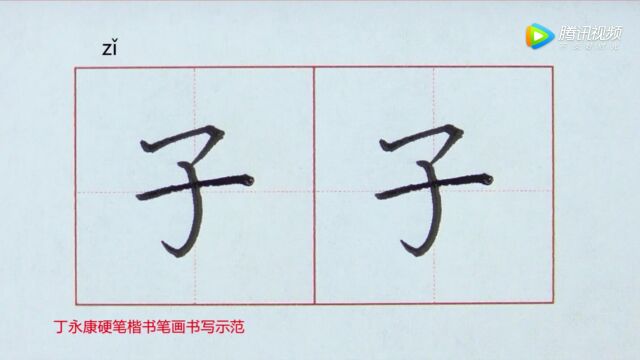 zǐ
腾讯视频
子 子
丁永康硬笔楷书笔画书写示范